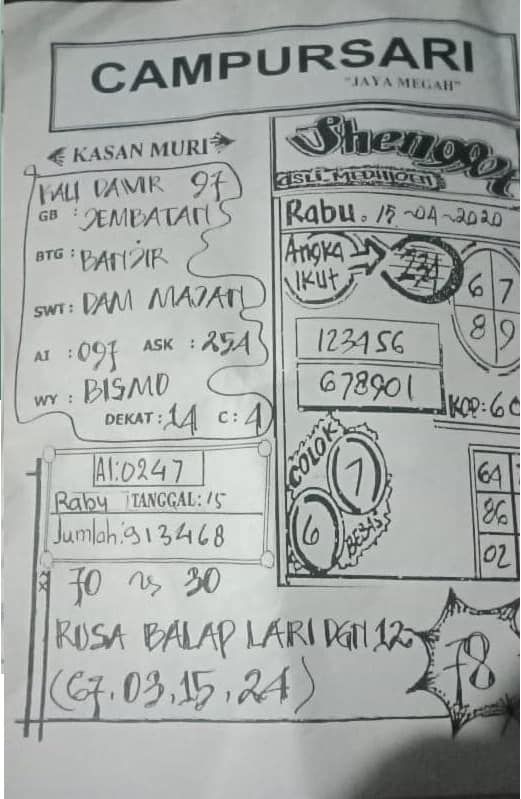 CAMPURSARI
"JAYA MEGAH"
KASAN MURI
KALI DAWIR 97
GB : JEMBATAN
BTG : BANJIR
SWT : DAM MAJAN
AI : 097 ASK : 254
WY : BISMO
DEKAT : 14 C : 4
AI:0247
Raby TANGGAL: 15
Jumlah:913468
70 vs 30
RUSA BALAP LARI DGN 12
(67.03.15.24)
78
Shengwt
ASLI MEDIUOEN
Rabu. 15-04-2020
Angka
Ikut
234
6 7
8 9
123456
678901
KOP: 6
COLOK
7
6
BEBAS
64
86
02